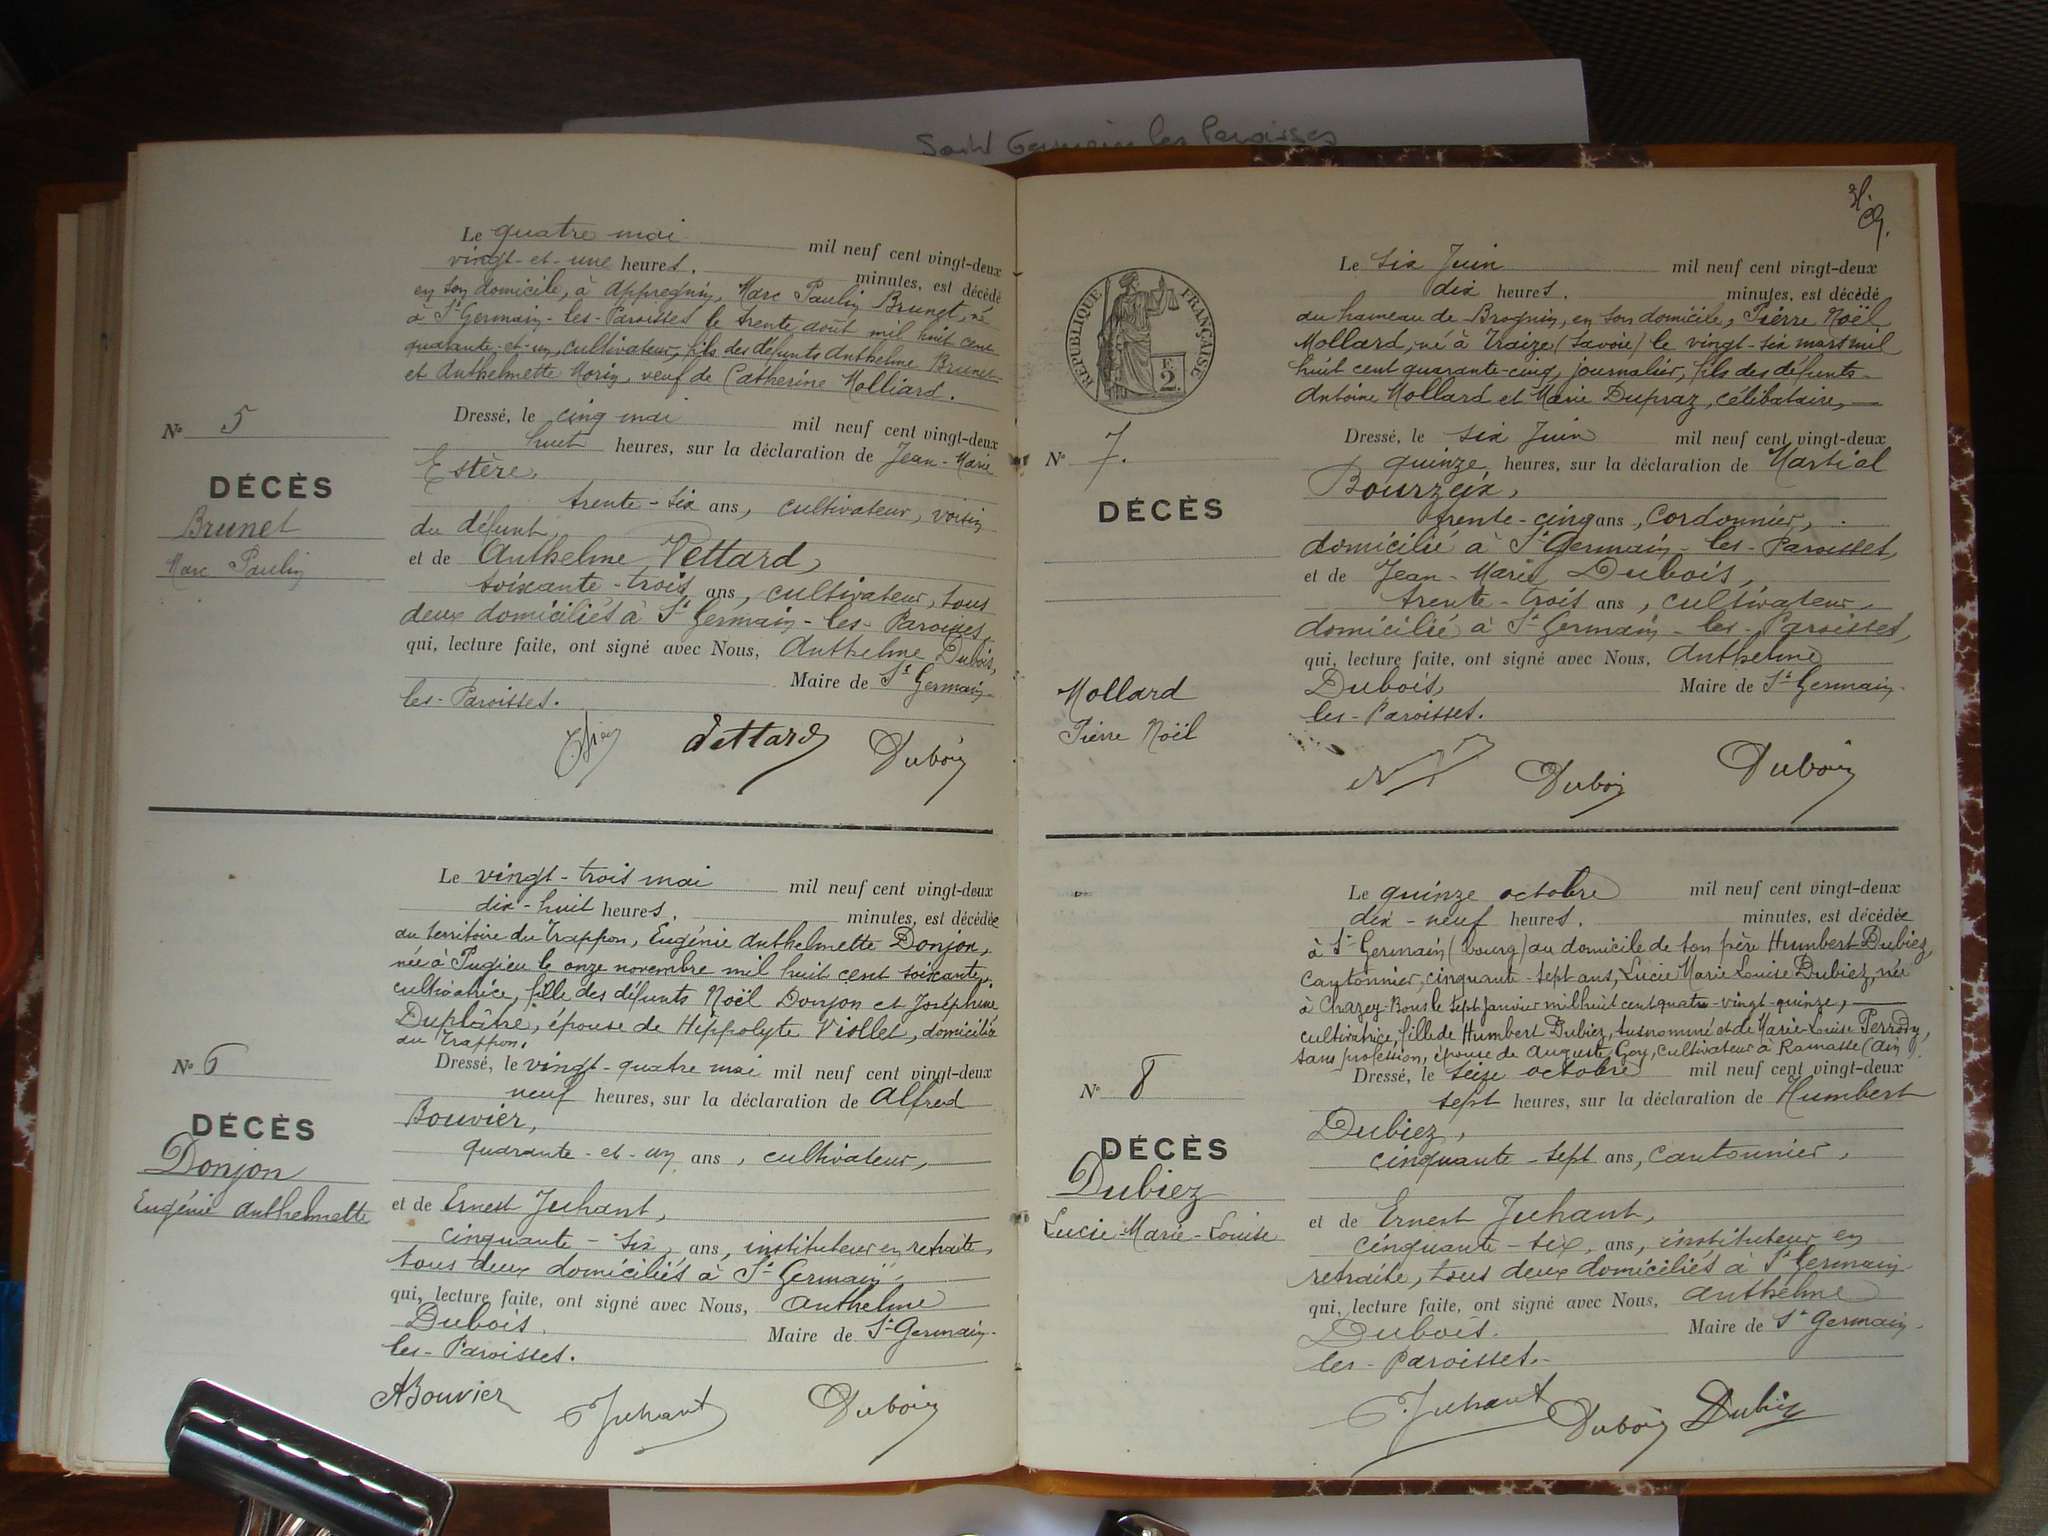 Saint Germain les Paroisses
Le quatre mai mil neuf cent vingt-deux
vingt-et-une heures. minutes, est décédé
en son domicile, à Appregnin, Marc Paulin Brunet, né
à St Germain-les-Paroisses le trente août mil huit cent
quarante-et-un, cultivateur, fils des défunts Anthelme Brunet
et Anthelmette Morin, veuf de Catherine Molliard.
No 5
DÉCÈS
Brunet
Marc Paulin
Dressé, le cinq mai mil neuf cent vingt-deux
huit heures, sur la déclaration de Jean-Marie
Estère,
trente-six ans, cultivateur, voisin
du défunt,
et de Anthelme Vettard,
soixante-trois ans, cultivateur, tous
deux domiciliés à St Germain-les-Paroisses,
qui, lecture faite, ont signé avec Nous, Anthelme Dubois,
Maire de St Germain-
les-Paroisses.
Vettard Dubois
Le vingt-trois mai mil neuf cent vingt-deux
dix-huit heures. minutes, est décédée
au territoire du Trappon, Eugénie Anthelmette Donjon,
née à Pugieu le onze novembre mil huit cent soixante,
cultivatrice, fille des défunts Noël Donjon et Joséphine
Duplâtre, épouse de Hippolyte Viollet, domiciliée
au Trappon.
No 6
DÉCÈS
Donjon
Eugénie Anthelmette
Dressé, le vingt-quatre mai mil neuf cent vingt-deux
neuf heures, sur la déclaration de Alfred
Bouvier,
quarante-et-un ans, cultivateur,
et de Ernest Juhant,
cinquante-six ans, instituteur en retraite,
tous deux domiciliés à St Germain,
qui, lecture faite, ont signé avec Nous, Anthelme
Dubois. Maire de St Germain-
les-Paroisses.
ABouvier Juhant Dubois
RÉPUBLIQUE FRANÇAISE
F.
2.
Le six Juin mil neuf cent vingt-deux
dix heures. minutes, est décédé
au hameau de Brognin, en son domicile, Pierre Noël
Mollard, né à Traize (Savoie) le vingt-six mars mil
huit cent quarante-cinq, journalier, fils des défunts
Antoine Mollard et Marie Dupraz, célibataire,
No 7.
DÉCÈS
Mollard
Pierre Noël
Dressé, le six Juin mil neuf cent vingt-deux
quinze heures, sur la déclaration de Martial
Bourzeix,
trente-cinq ans, cordonnier,
domicilié à St Germain-les-Paroisses,
et de Jean-Marie Dubois,
trente-trois ans, cultivateur,
domicilié à St Germain-les-Paroisses,
qui, lecture faite, ont signé avec Nous, Anthelme
Dubois, Maire de St Germain-
les-Paroisses.
Dubois Dubois
Le quinze octobre mil neuf cent vingt-deux
dix-neuf heures. minutes, est décédée
à St Germain (bourg) au domicile de son père Humbert Dubiez,
cantonnier, cinquante-sept ans, Lucie Marie Louise Dubiez, née
à Chazey-Bons le sept janvier mil huit cent quatre-vingt-quinze,
cultivatrice, fille de Humbert Dubiez, susnommé et de Marie-Louise Perrody,
sans profession, épouse de Auguste Goy, cultivateur à Ramasse (Ain).
No 8
DÉCÈS
Dubiez
Lucie-Marie-Louise
Dressé, le seize octobre mil neuf cent vingt-deux
sept heures, sur la déclaration de Humbert
Dubiez,
cinquante-sept ans, cantonnier,
et de Ernest Juhant,
cinquante-six ans, instituteur en
retraite, tous deux domiciliés à St Germain
qui, lecture faite, ont signé avec Nous, Anthelme
Dubois. Maire de St Germain-
les-Paroisses.
Juhant Dubois Dubiez